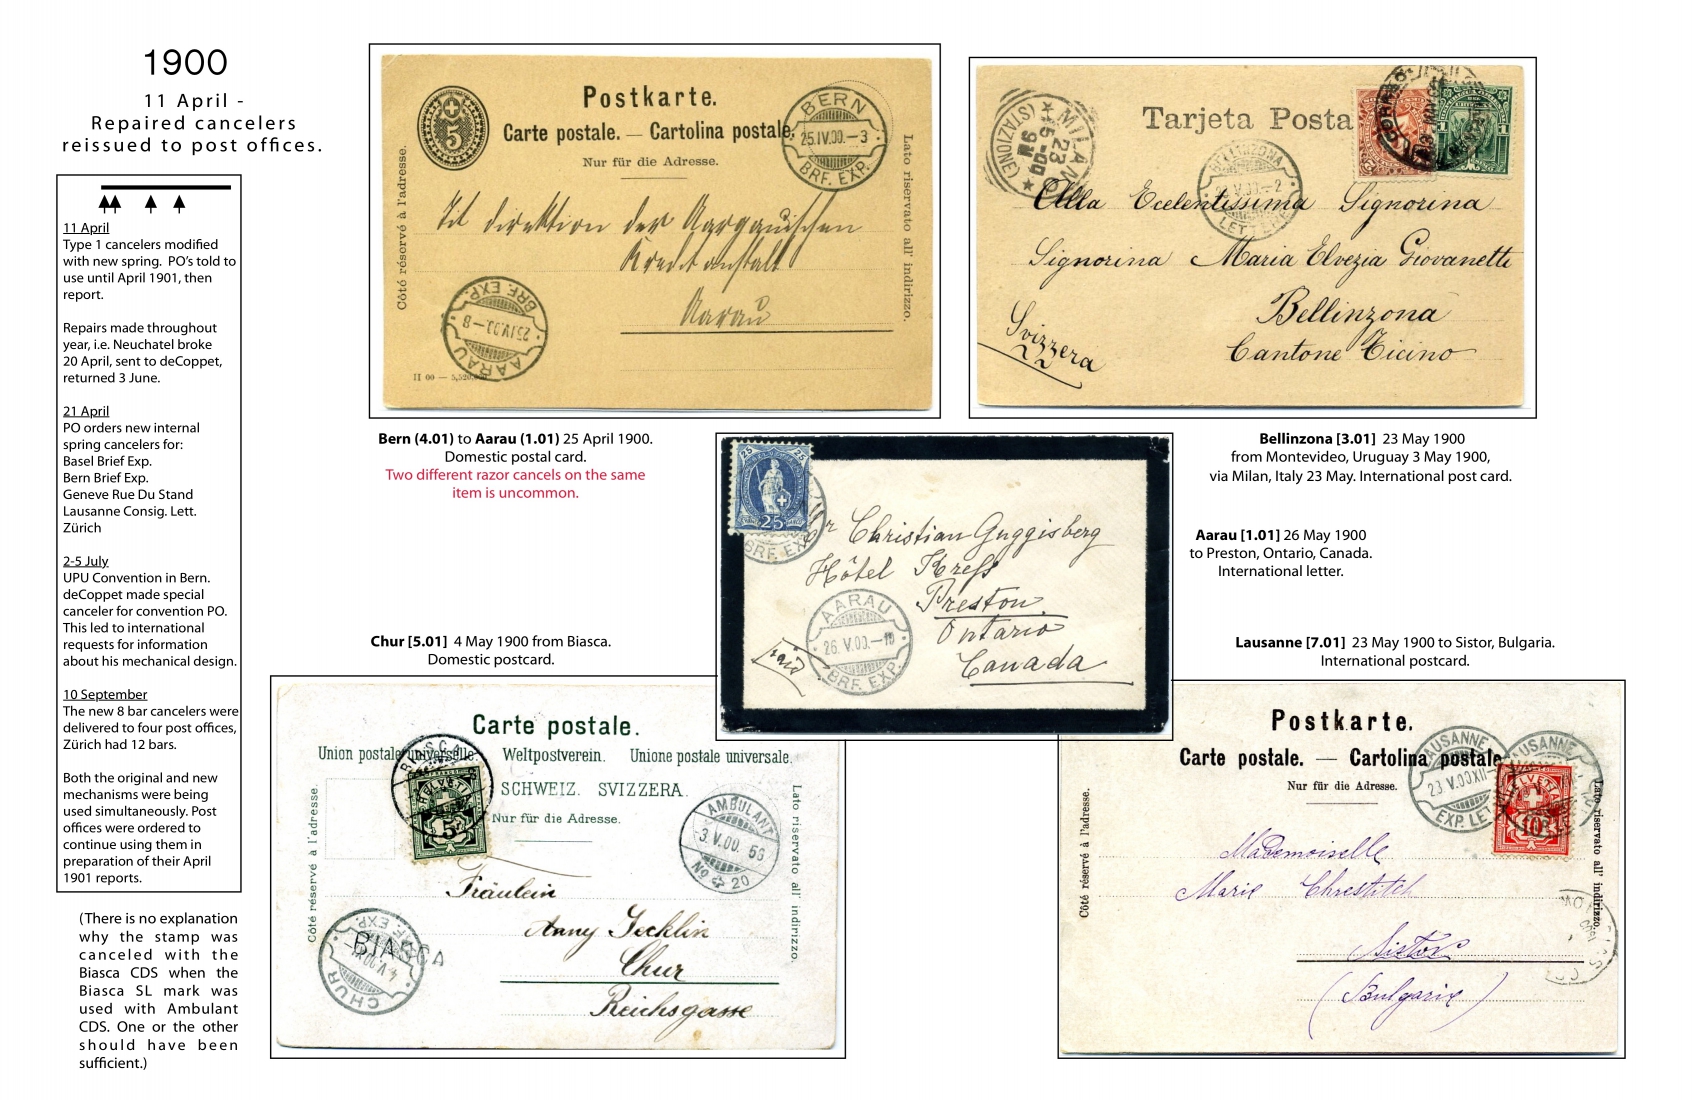 1900
11 April -
Repaired cancelers
reissued to post offices.
11 April
Type 1 cancelers modified
with new spring. PO's told to
use until April 1901, then
report.
Repairs made throughout
year, i.e. Neuchatel broke
20 April, sent to deCoppet,
returned 3 June.
21 April
PO orders new internal
spring cancelers for:
Basel Brief Exp.
Bern Brief Exp.
Geneve Rue Du Stand
Lausanne Consig. Lett.
Zürich
2-5 July
UPU Convention in Bern.
deCoppet made special
canceler for convention PO.
This led to international
requests for information
about his mechanical design.
10 September
The new 8 bar cancelers were
delivered to four post offices,
Zürich had 12 bars.
Both the original and new
mechanisms were being
used simultaneously. Post
offices were ordered to
continue using them in
preparation of their April
1901 reports.
(There is no explanation
why the stamp was
canceled with the
Biasca CDS when the
Biasca SL mark was
used with Ambulant
CDS. One or the other
should have been
sufficient.)
5
Postkarte.
Carte postale. — Cartolina postale.
Nur für die Adresse.
Côté réservé à l'adresse.
Lato riservato all' indirizzo.
BERN
25.IV.00.—3
BRF. EXP.
Tit direktion der Aargauischen
Kreditanstalt
Aarau
AARAU
25.IV.00.—8
BRF. EXP.
II 00 — 5,520,
Bern (4.01) to Aarau (1.01) 25 April 1900.
Domestic postal card.
Two different razor cancels on the same
item is uncommon.
Tarjeta Posta
MILANO
23
5-00
9M
(STAZIONE)
BELLINZONA
V.00.—2
LETTERE
Alla Ecelentissima Signorina
Signorina Maria Elvezia Giovanetti
Bellinzona
Cantone Ticino
Svizzera
Bellinzona [3.01] 23 May 1900
from Montevideo, Uruguay 3 May 1900,
via Milan, Italy 23 May. International post card.
25 25
25
BRF. EXP.
Christian Guggisberg
Hôtel Kress
Preston
Ontario
Canada
AARAU
26. V.00.—10
BRF. EXP.
Aarau [1.01] 26 May 1900
to Preston, Ontario, Canada.
International letter.
Chur [5.01] 4 May 1900 from Biasca.
Domestic postcard.
Carte postale.
Union postale universelle. Weltpostverein. Unione postale universale.
SCHWEIZ. SVIZZERA.
Nur für die Adresse.
Côté réservé à l'adresse.
Lato riservato all' indirizzo.
BIASCA
HELVETIA
5
AMBULANT
3.V.00. 56
No 20
Fräulein
Anny Jecklin
Chur
Reichsgasse
BIASCA
CHUR
4.V.00
BRF. EXP.
Lausanne [7.01] 23 May 1900 to Sistor, Bulgaria.
International postcard.
Postkarte.
Carte postale. — Cartolina postale
Nur für die Adresse.
Côté réservé à l'adresse.
Lato riservato all' indirizzo.
LAUSANNE
23 V.00XII
EXP. LE
LAUSANNE
HELVETIA
10
Mademoiselle
Marie Chrestitch
Sistov
(Bulgarie)